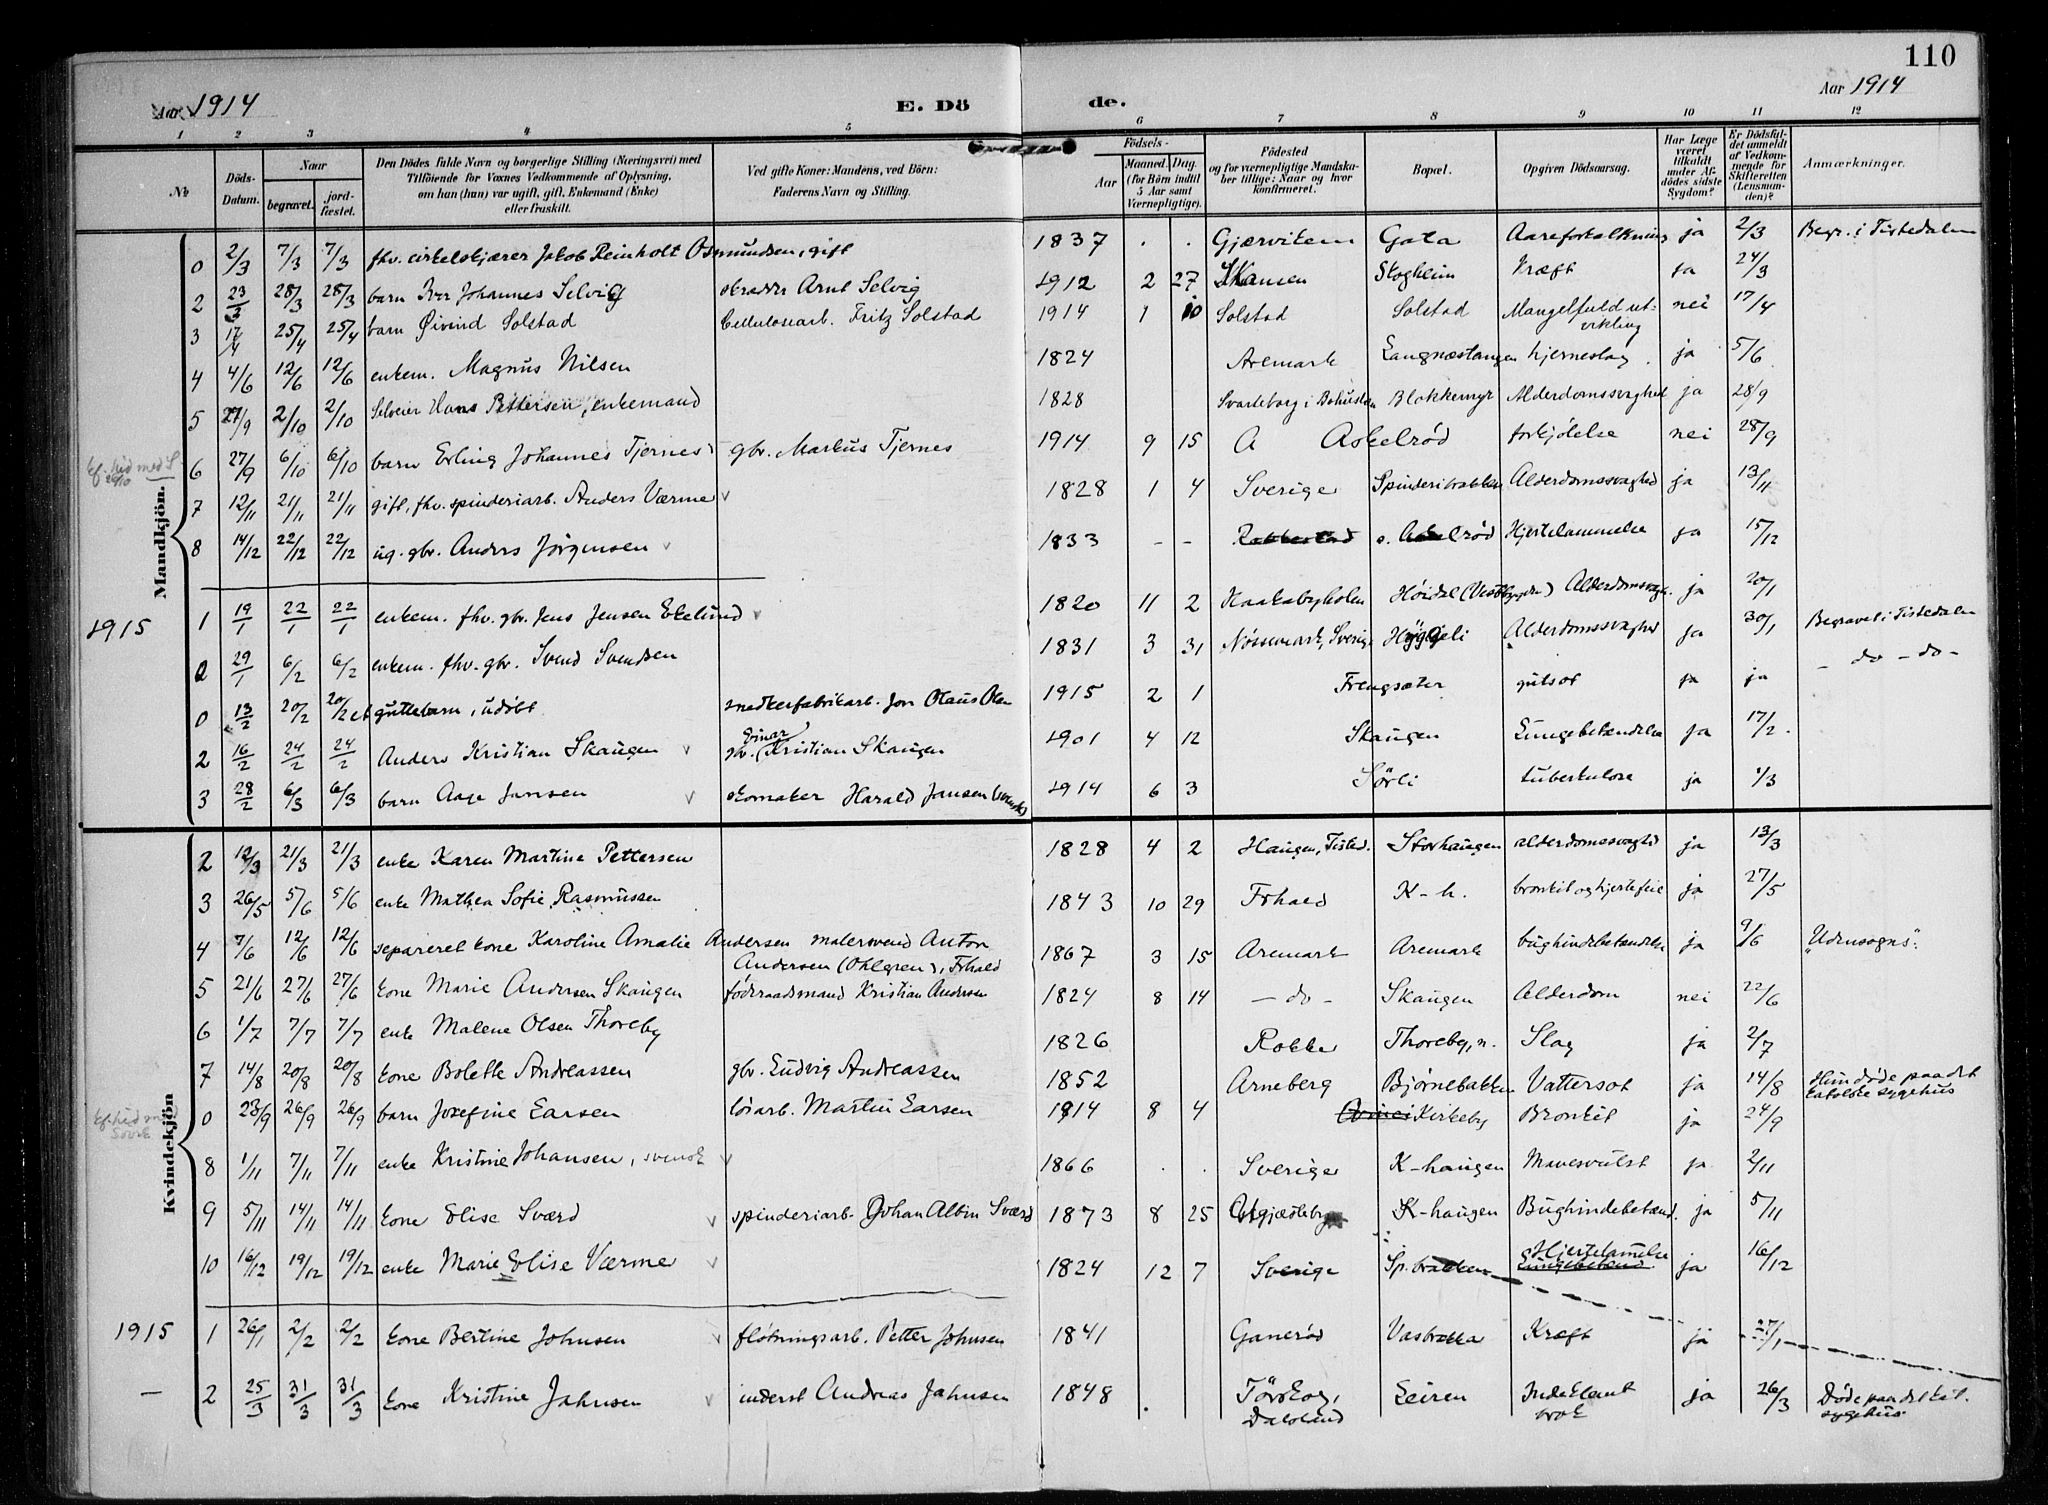 110
Aar 1914
E. Dö
de.
Aar 1914
1 2 3 4 5 6 7 8 9 10 11 12
№
Döds-Datum.
Naar
begravet.
jord-fæstet.
Den Dödes fulde Navn og borgerlige Stilling (Næringsvei) med
Tilföiende for Voxnes Vedkommende af Oplysning,
om han (hun) var ugift, gift, Enkemand (Enke)
eller fraskilt.
Ved gifte Koner: Mandens, ved Börn:
Faderens Navn og Stilling.
Födsels-
Aar
Maaned. Dag.
(for Börn indtil
5 Aar samt
Værnepligtige).
Födested
og for værnepligtige Mandska-
ber tillige: Naar og hvor
konfirmeret.
Bopæl.
Opgiven Dödsaarsag.
Har Læge
været
tilkaldt
under Af-
dödes sidste
Sygdom?
Er Dödsful-
det anmeldt
af Vedkom-
mende for
Skifteretten
(Lensman-
den)?
Anmærkninger.
Mandkjön.
0 2/3 7/3 7/3 fhv. cirkelskjærer Jakob Reinholt Osmundsen, gift 1837 . . Gjærvitem Gata Aareforkalkning ja 2/3 Begr. i Tistedalen
2 23/3 28/3 28/3 barn Iver Johannes Selvig skrædder Arnt Selvig 1912 2 27 Skansen Skogheim Kræft ja 24/3
3 17/4 25/4 25/4 barn Øivind Solstad Cellulosearb. Fritz Solstad 1914 1 10 Solstad Solstad Mangelfuld ut-vikling nei 17/4
4 4/6 12/6 12/6 enkem. Magnus Nilsen 1824 Aremark Langnæstangen hjerneslag ja 5/6
5 27/9 2/10 2/10 Selveier Hans Pettersen, enkemand 1828 Svarteborg i Bohuslen Blokkemyr Alderdomssvaghed ja 28/9
6 27/9 6/10 6/10 barn Erling Johannes Tjernes gbr. Markus Tjernes 1914 9 15 A Askelrød forkjølelse nei 28/9
7 12/11 21/11 21/11 gift, fhv. spinderiarb. Anders Værme 1828 1 4 Sverige Spinderibakken Alderdomssvaghed ja 13/11
8 14/12 22/12 22/12 ug. gbr. Anders Jørgensen 1833 - - o. Askelrød Hjertelammelse ja 15/12
1915
1 19/1 22/1 22/1 enkem. fhv. gbr. Jens Jensen Ekelund 1820 11 2 Kaatabyholen Høidal Alderdomssvagh. ja 20/1
0 29/1 6/2 6/2 enkem. fhv. gbr. Svend Svendsen 1831 3 31 Nössemark, Sverige Hyggeli Alderdomssvaghed ja 30/1 Begravet i Tistedalen
0 13/2 20/2 20/2 et guttebarn, udöbt snedkerfabrikarb. Jon Olaus Olsen 1915 2 1 Frengsæter gulsot ja ja - do - do -
2 16/2 24/2 24/2 Anders Kristian Skaugen gbr. Einar Kristian Skaugen 1901 4 12 Skaugen Lungebetændelse ja 17/2.
3 28/2 6/3 6/3 barn Aage Jansen skomaker Harald Jansen (svensk) 1914 6 3 Sörli tuberkulose ja 1/3
Kvindekjön
2 12/3 21/3 21/3 enke Karen Martine Pettersen 1828 4 2 Haugen, Tisted. Storhaugen alderdomssvaghed ja 13/3
3 26/5 5/6 5/6 enke Mathea Sofie Rasmussen 1843 10 29 Frhald K-h. bronkit og hjertefeil ja 27/5
4 7/6 12/6 12/6 separeret kone Karoline Amalie Andersen malersvend Anton
Andersen (Ohlgren), Frhald 1867 3 15 Aremark Aremark bughindebetændelse ja 9/6 "Udensogns".
5 21/6 27/6 27/6 kone Marie Andersen Skaugen föderaadsmand Kristian Andersen 1824 8 14 - do - Skaugen Alderdom nei 22/6
6 1/7 7/7 7/7 enke Malene Olsen Thoreby 1826 Rokke Thoreby, n. Slag ja 2/7
7 14/8 20/8 20/8 kone Bolette Andreassen gbr. Ludvig Andreassen 1852 Arneberg Bjørnebakken Vattersot ja 14/8 Hun døde paa det
katolske sygehus
0 23/9 26/9 26/9 barn Josefine Larsen løsarb. Martin Larsen 1914 8 4 Kirkeby Bronkit ja 24/9
8 1/11 7/11 7/11 enke Kristine Johansen, svensk 1866 . . Sverige K-haugen Mavesvulst ja 2/11
9 5/11 14/11 14/11 kone Elise Sværd spinderiarb. Johan Albin Sværd 1873 8 25 K-haugen Bughindebetænd. ja 5/11
10 16/12 19/12 19/12 enke Marie Elise Værme 1824 12 7 Sverige Sp. bakken Hjertelamelse Lungebetænd. ja 16/12
1915
1 26/1 2/2 2/2 kone Bertine Johnsen fløtningsarb. Petter Johnsen 1841 Ganerød Vasbakka Kræft ja 27/1
- 2 25/3 31/3 31/3 kone Kristine Jahnsen inderst Andreas Jahnsen 1848 . Törskog,
Dalsland Leiren Indeklemt
brok ja 26/3 Døde paa det kat.
sygehus